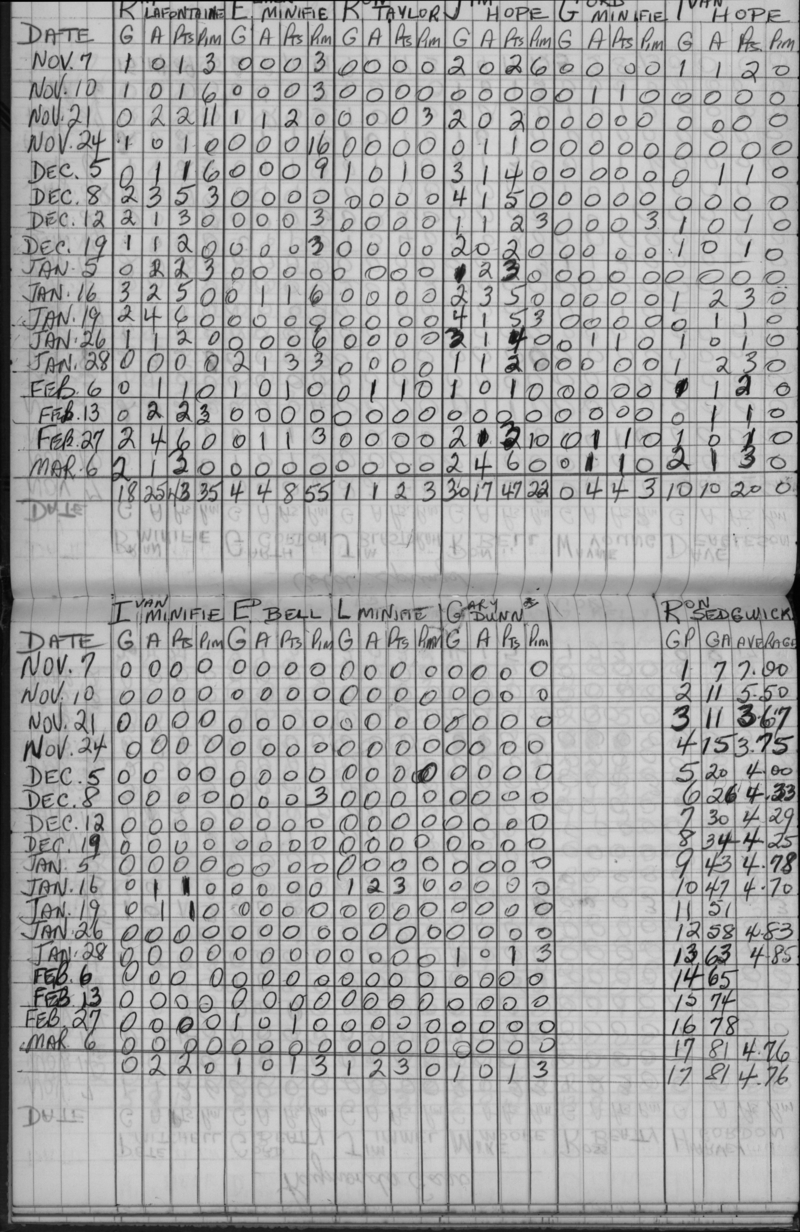 LAFONTAINE MINIFIE RON TAYLOR JIM HOPE GORD MINIFIE IVAN HOPE
DATE G A Pts Pim G A Pts Pim G A Pts Pim G A Pts Pim G A Pts Pim G A Pts Pim
NOV. 7 1 0 1 3 0 0 0 3 0 0 0 0 2 0 2 6 0 0 0 0 1 1 2 0
NOV. 10 1 0 1 6 0 0 0 3 0 0 0 0 0 0 0 0 0 1 1 0 0 0 0 0
NOV. 21 0 2 2 11 1 1 2 0 0 0 0 3 2 0 2 0 0 0 0 0 0 0 0 0
NOV. 24 1 0 1 0 0 0 0 16 0 0 0 0 0 1 1 0 0 0 0 0 0 0 0 0
DEC. 5 0 1 1 6 0 0 0 9 1 0 1 0 3 1 4 0 0 0 0 0 0 1 1 0
DEC. 8 2 3 5 3 0 0 0 0 0 0 0 0 4 1 5 0 0 0 0 0 0 0 0 0
DEC. 12 2 1 3 0 0 0 0 3 0 0 0 0 1 1 2 3 0 0 0 3 1 0 1 0
DEC. 19 1 1 2 0 0 0 0 3 0 0 0 0 2 0 2 0 0 0 0 0 1 0 1 0
JAN. 5 0 2 2 3 0 0 0 0 0 0 0 0 1 2 3 0 0 0 0 0 0 0 0 0
JAN. 16 3 2 5 0 0 1 1 6 0 0 0 0 2 3 5 0 0 0 0 0 1 2 3 0
JAN. 19 2 4 6 0 0 0 0 0 0 0 0 0 4 1 5 3 0 0 0 0 0 1 1 0
JAN. 26 1 1 2 0 0 0 0 6 0 0 0 0 3 1 4 0 0 1 1 0 1 0 1 0
JAN. 28 0 0 0 0 2 1 3 3 0 0 0 0 1 1 2 0 0 0 0 0 1 2 3 0
FEB. 6 0 1 1 0 1 0 1 0 0 1 1 0 1 0 1 0 0 0 0 0 1 1 2 0
FEB. 13 0 2 2 3 0 0 0 0 0 0 0 0 0 0 0 0 0 0 0 0 0 1 1 0
FEB. 27 2 4 6 0 0 1 1 3 0 0 0 0 2 1 3 10 0 1 1 0 1 0 1 0
MAR. 6 2 1 3 0 0 0 0 0 0 0 0 0 2 4 6 0 0 1 1 0 2 1 3 0
18 25 43 35 4 4 8 55 1 1 2 3 30 17 47 22 0 4 4 3 10 10 20 0
IVAN MINIFIE ED BELL L MINIFIE GARY DUNN RON SEDGWICK
DATE G A Pts Pim G A Pts Pim G A Pts Pim G A Pts Pim GP GA AVERAGE
NOV. 7 0 0 0 0 0 0 0 0 0 0 0 0 0 0 0 0 1 7 7.00
NOV. 10 0 0 0 0 0 0 0 0 0 0 0 0 0 0 0 0 2 11 5.50
NOV. 21 0 0 0 0 0 0 0 0 0 0 0 0 0 0 0 0 3 11 3.67
NOV. 24 0 0 0 0 0 0 0 0 0 0 0 0 0 0 0 0 4 15 3.75
DEC. 5 0 0 0 0 0 0 0 0 0 0 0 0 0 0 0 0 5 20 4.00
DEC. 8 0 0 0 0 0 0 0 3 0 0 0 0 0 0 0 0 6 26 4.33
DEC. 12 0 0 0 0 0 0 0 0 0 0 0 0 0 0 0 0 7 30 4.29
DEC. 19 0 0 0 0 0 0 0 0 0 0 0 0 0 0 0 0 8 34 4.25
JAN. 5 0 0 0 0 0 0 0 0 0 0 0 0 0 0 0 0 9 43 4.78
JAN. 16 0 1 1 0 0 0 0 0 1 2 3 0 0 0 0 0 10 47 4.70
JAN. 19 0 1 1 0 0 0 0 0 0 0 0 0 0 0 0 0 11 51
JAN. 26 0 0 0 0 0 0 0 0 0 0 0 0 0 0 0 0 12 58 4.83
JAN. 28 0 0 0 0 0 0 0 0 0 0 0 0 1 0 1 3 13 63 4.85
FEB. 6 0 0 0 0 0 0 0 0 0 0 0 0 0 0 0 0 14 65
FEB. 13 0 0 0 0 0 0 0 0 0 0 0 0 0 0 0 0 15 74
FEB. 27 0 0 0 0 1 0 1 0 0 0 0 0 0 0 0 0 16 78
MAR 6 0 0 0 0 0 0 0 0 0 0 0 0 0 0 0 0 17 81 4.76
0 2 2 0 1 0 1 3 1 2 3 0 1 0 1 3 17 81 4.76